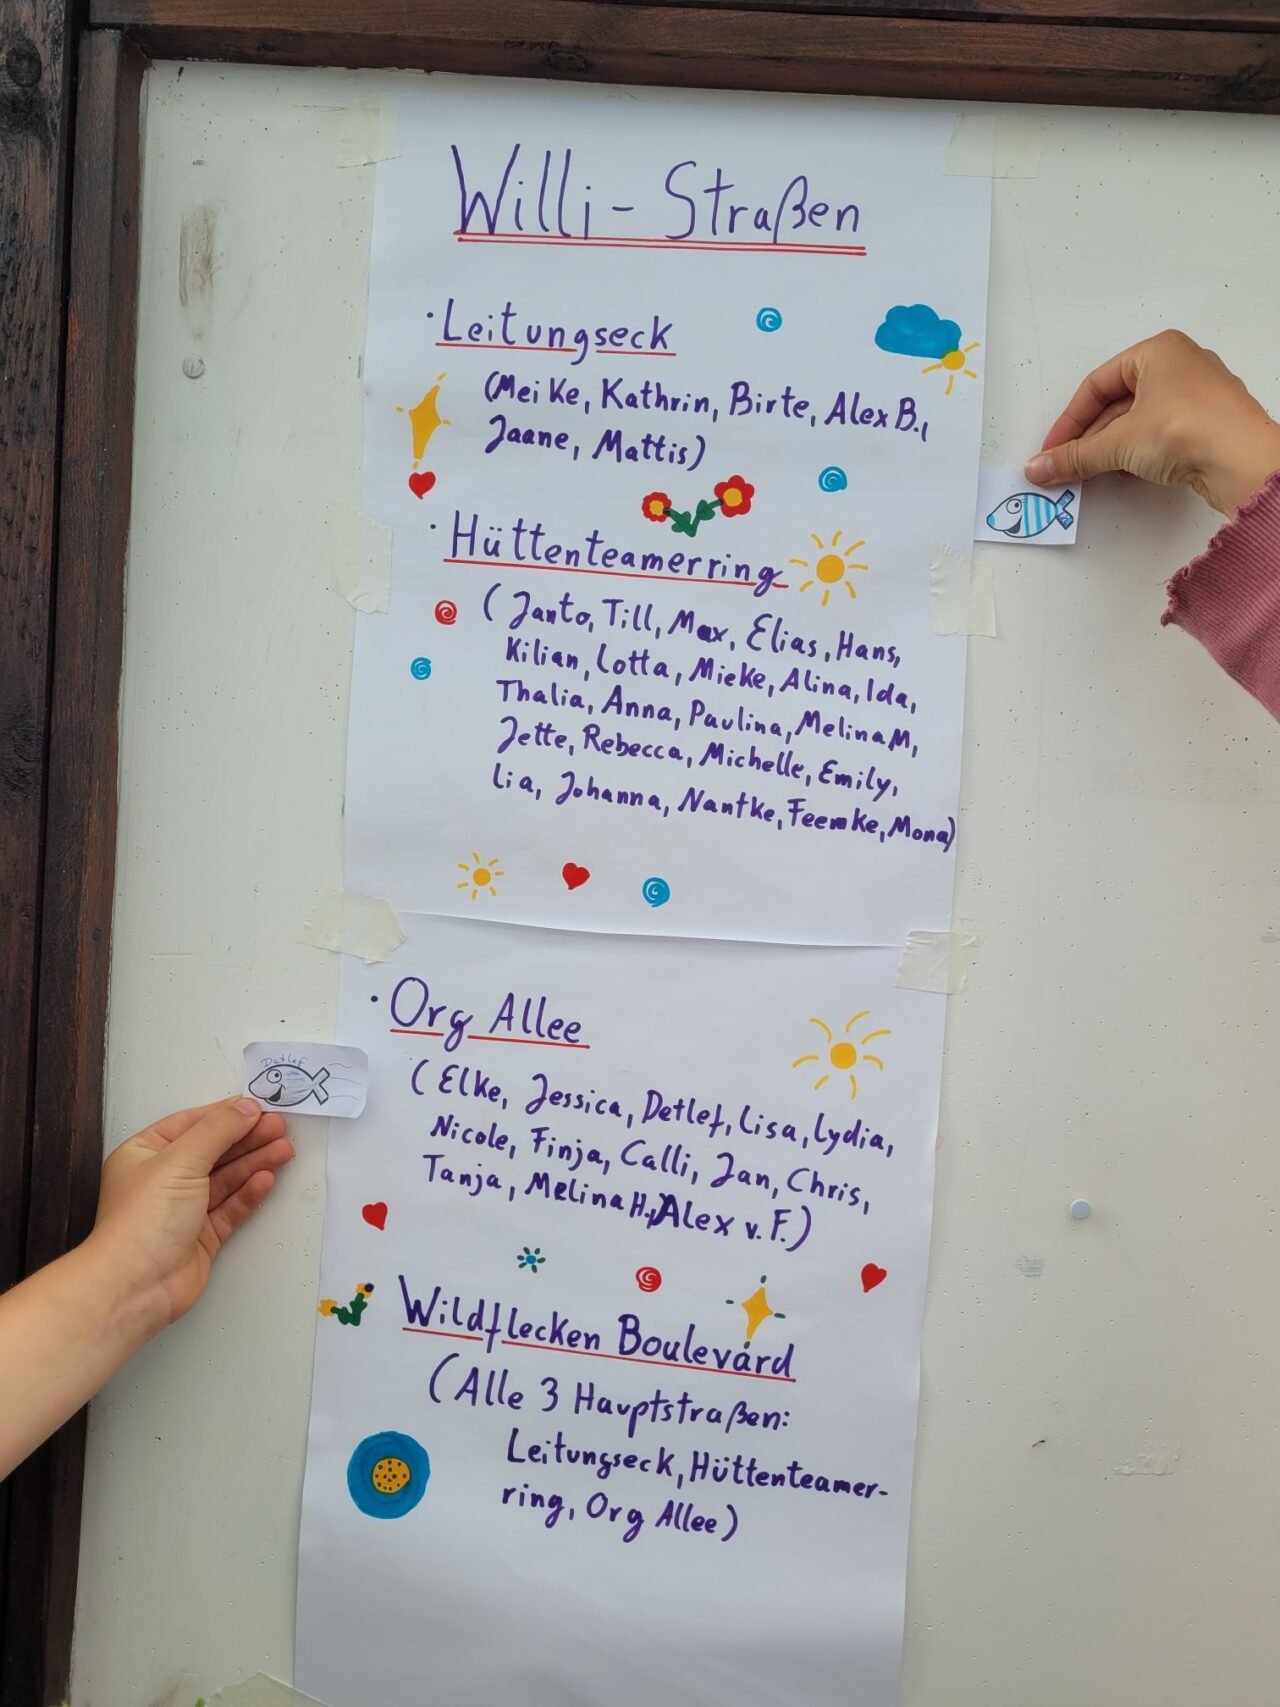 Willi-Straßen
· Leitungseck
(Meike, Kathrin, Birte, Alex B.,
Jaane, Mattis)
· Hüttenteamerring
(Janto, Till, Max, Elias, Hans,
Kilian, Lotta, Mieke, Alina, Ida,
Thalia, Anna, Paulina, Melina M,
Jette, Rebecca, Michelle, Emily,
Lia, Johanna, Nantke, Feemke, Mona)
· Org Allee
Detlef
(Elke, Jessica, Detlef, Lisa, Lydia,
Nicole, Finja, Calli, Jan, Chris,
Tanja, Melina H., Alex v. F.)
Wildflecken Boulevard
(Alle 3 Hauptstraßen:
Leitungseck, Hüttenteamer-
ring, Org Allee)